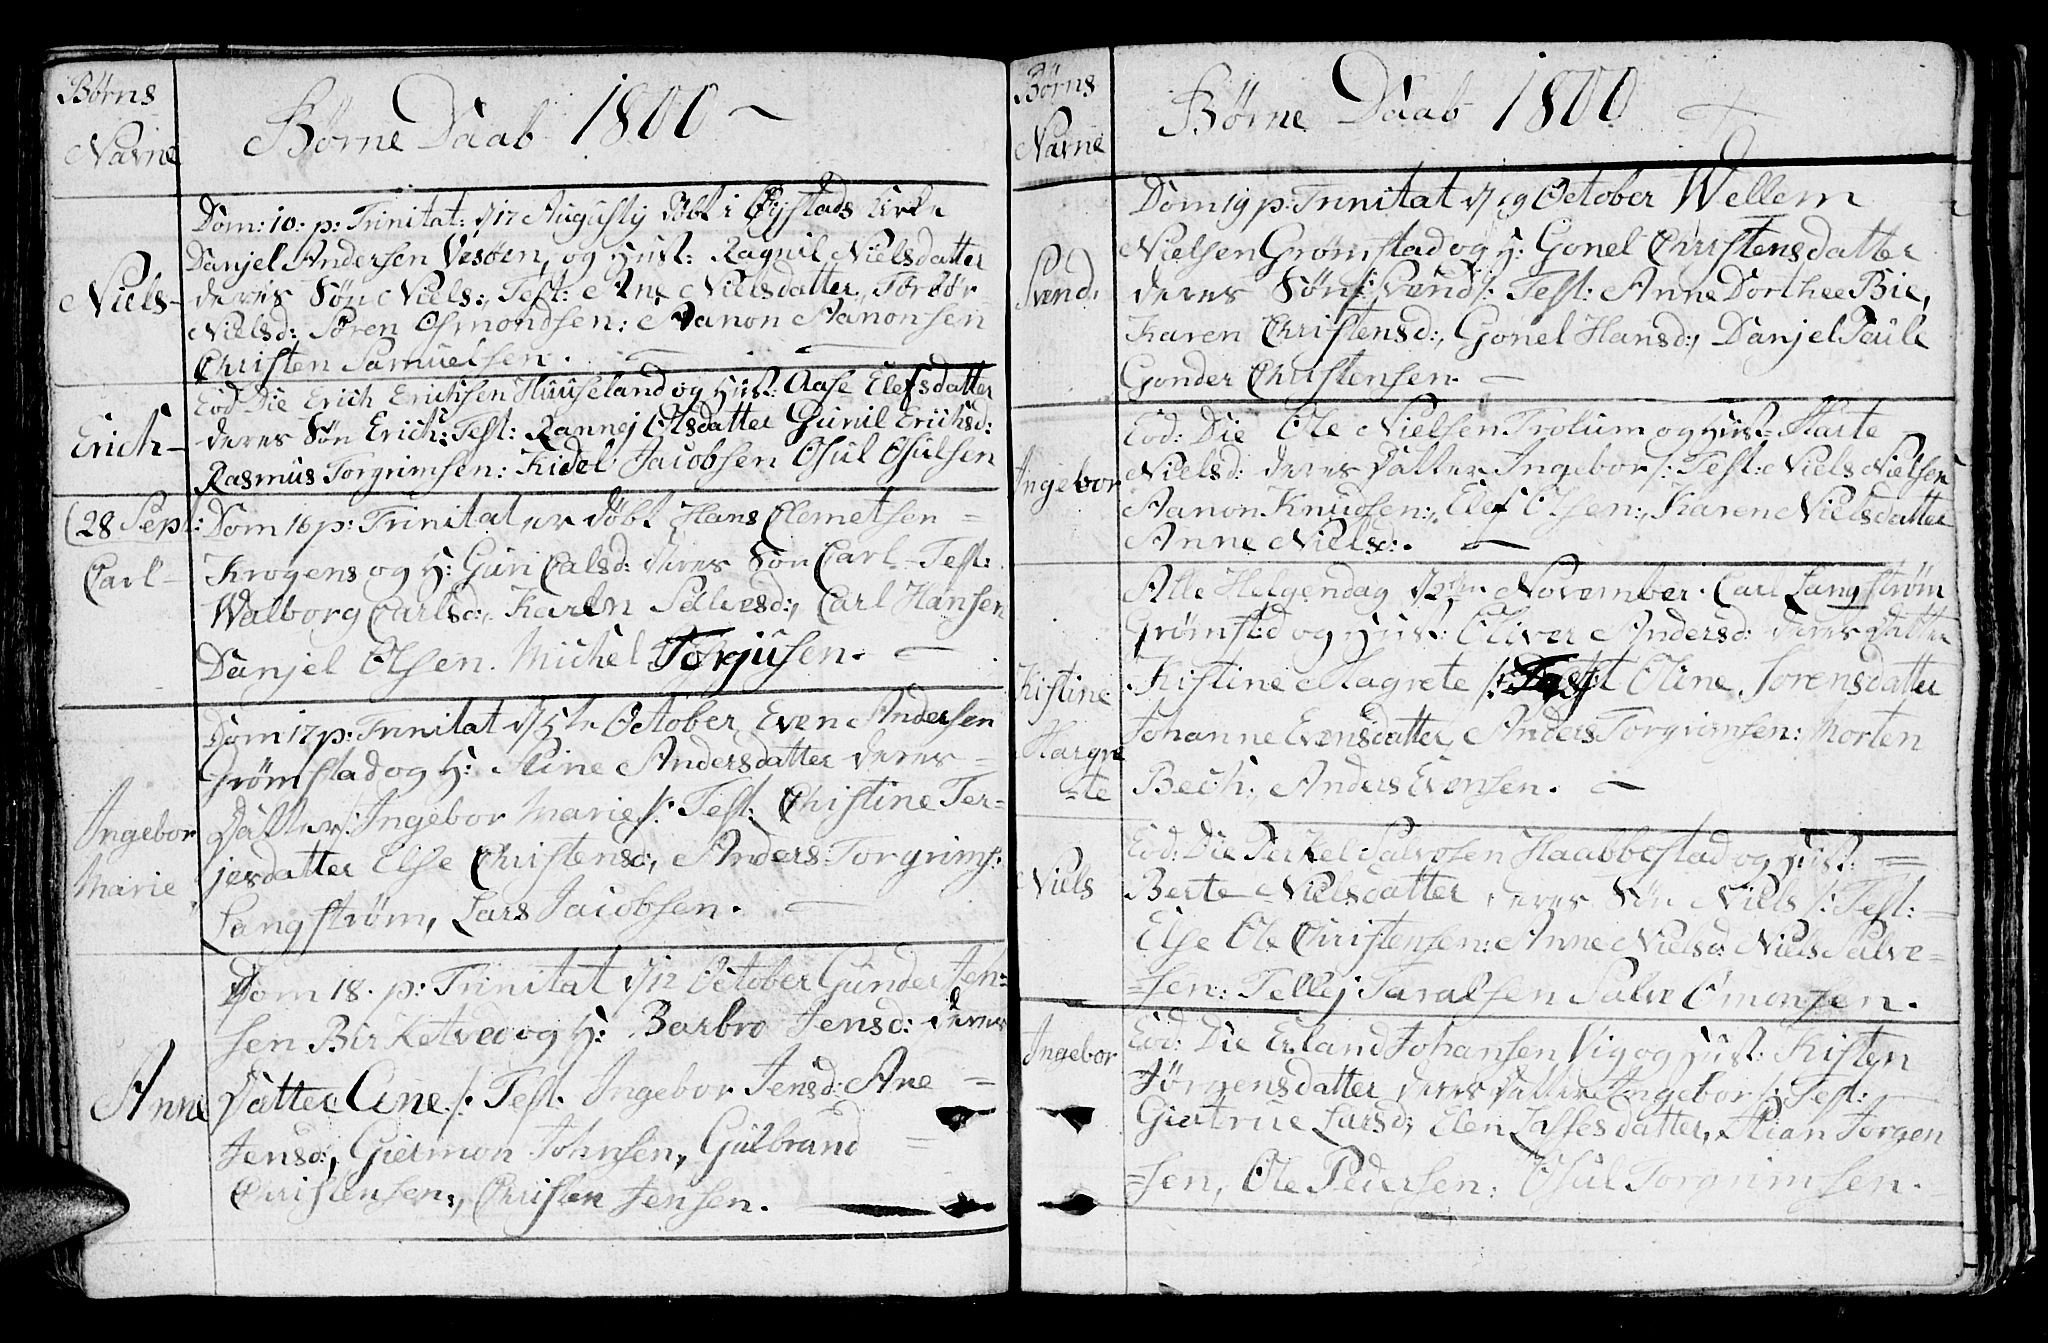 Børns
Navne
Børne Daab 1800
Dom: 10. p: Trinitat: d 17 Augustij døbt i Øystads Kirke
Niels
Danjel Andersen Vesøen, og Hust: Ragnil Nielsdatter
deres Søn Niels:, Test: Ane Nielsdatter, Torbor
Nielsd: Søren Osmondsen: Aanon Aanonsen
Christen Samuelsen.
Erich
Eod Die Erich Erichsen Huuseland og Hust: Aase Elefsdatter
deres Søn Erich: Test: Rannej Olsdatter Gunil Erichsd:
Rasmus Torgrimsen: Kidel Jacobsen Osul Osulsen
(28 Sept:
Carl
Dom 16 p: Trinitat er døbt Hans Clemetsen
Krogens og H: Guri Calsd: deres Søn Carl Test:
Walborg Carlsd:, Karen Salvesd:, Carl Hansen
Danjel Olsen. Michel Torjusen.
Ingebor
Marie
Dom 17 p: Trinitat d 5te October Even Andersen
Grømstad og H: Stine Andersdatter deres
Datter /: Ingebor Marie /: Test: Christine Ter-
jesdatter Else Christensd:, Anders Torgrims:
Langstrøm, Lars Jacobsen.
Anne
Dom 18. p: Trinitat d 12 October Gunder Jen-
sen Birketved og H: Barbro Jensd: deres
Datter Ane /: Test. Ingebor Jensd: Ane
Jensd:, Giermon Johnsen, Gulbrand
Christensen:, Christen Jensen.
Børns
Navne
Børne Daab 1800
Svend
Dom 19 p: Trinitat d 19 October Wellem
Nielsen Grømstad og H: Gonel Christensdatter
deres Søn /: Svend /: Test: Anne Dorthee Bie,
Karen Christensd:, Gonel Hansd:, Danjel Paule
Gonder Christensen.
Ingebor
Eod: Die Ole Nielsen Trolum og Hust: Marte
Nielsd: deres Datter Ingebor /: Test: Niels Nielsen
Aanon Knudsen:, Elef Olsen:, Karen Nielsdatter
Anne Nielsd:.
Kistine
Margre
-te
Alle Helgendag d 2den November. Carl Langstrøm
Grømstad og Hust: Oliver Andersd: deres Datter
Kistine Magrete /: Test Oline Sorensdatter
Johanne Evensdatter, Anders Torgrimsen: Morten
Bech:, Anders Evensen.
Niels
Eod: Die Terkel Salvesen Haabbestad og Hust:
Berte Nielsdatter deres Søn Niels /: Test:
Else Ole Christensen: Anne Nielsd: Niels Salve-
-sen: Tellej Taralsen Salve Omonsen.
Ingebor
Eod: Die Erland Johansen Vig og Hust: Kisten
Jörgensdatter deres Datter Ingebor /: Test:
Giertrue Larsd:, Elen Lassesdatter, Stian Jorgen
-sen, Ole Pedersen: Osul Torgrimsen.